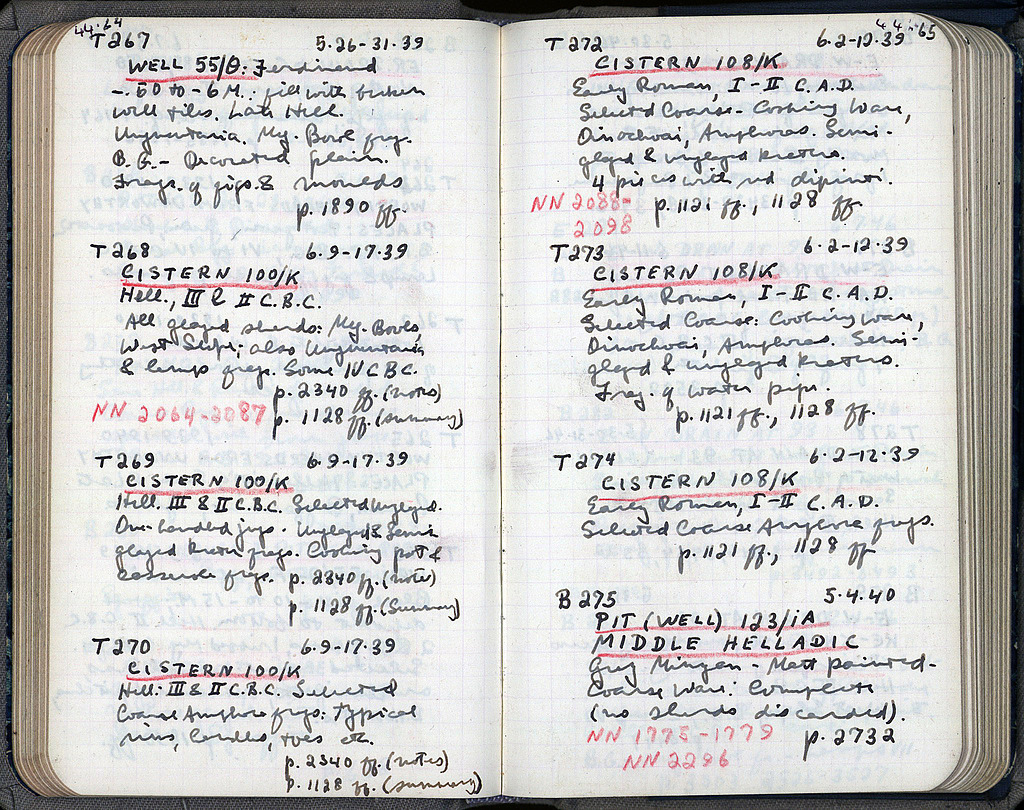 44-64
T 267 5.26-31.39
WELL 55/Θ: Ferdinand
-.50 to -6 M., fill with broken
well tiles. Late Hell.
Unguentaria. Meg. Bowl frag.
B.G. - Decorated plain.
Frags. of figs. & moulds
p. 1890 ff.
T 268 6.9-17.39
CISTERN 100/K
Hell., III & II C.B.C.
All glazed sherds: Meg. Bowls
West Slope; also Unguentaria
& lamp frags. Some IV C.BC.
p. 2340 ff. (notes)
NN 2064-2087 p. 1128 ff. (summary)
T 269 6.9-17.39
CISTERN 100/K
Hell. III & II C.B.C. Selected Unglazed.
One-handled jugs. Unglazed & Semi
glazed krater frags. Cooking pot &
casserole frags. p. 2340 ff. (notes)
p. 1128 ff. (Summary)
T 270 6.9-17.39
CISTERN 100/K
Hell: III & II C.B.C. Selected
Coarse Amphora frags: typical
rims, handles, toes etc.
p. 2340 ff. (notes)
p. 1128 ff. (summary)
44-65
T 272 6.2-12.39
CISTERN 108/K
Early Roman, I-II C. A.D.
Selected Coarse - Cooking Ware,
Oinochoai, Amphoras. Semi-
glazed & unglazed kraters.
4 pieces with red dipinti.
NN 2088- p. 1121 ff., 1128 ff.
2098
T 273 6.2-12.39
CISTERN 108/K
Early Roman, I-II C. A.D.
Selected Coarse: Cooking Ware,
Oinochoai, Amphoras. Semi-
glazed & unglazed kraters.
Frag. of water pipe.
p. 1121 ff., 1128 ff.
T 274 6.2-12.39
CISTERN 108/K
Early Roman, I-II C. A.D.
Selected Coarse Amphora frags.
p. 1121 ff., 1128 ff
B 275 5.4.40
PIT (WELL) 123/iA
MIDDLE HELLADIC
Grey Minyan - Matt painted -
Coarse Ware: Complete
(no sherds discarded).
NN 1775-1779 p. 2732
NN 2296